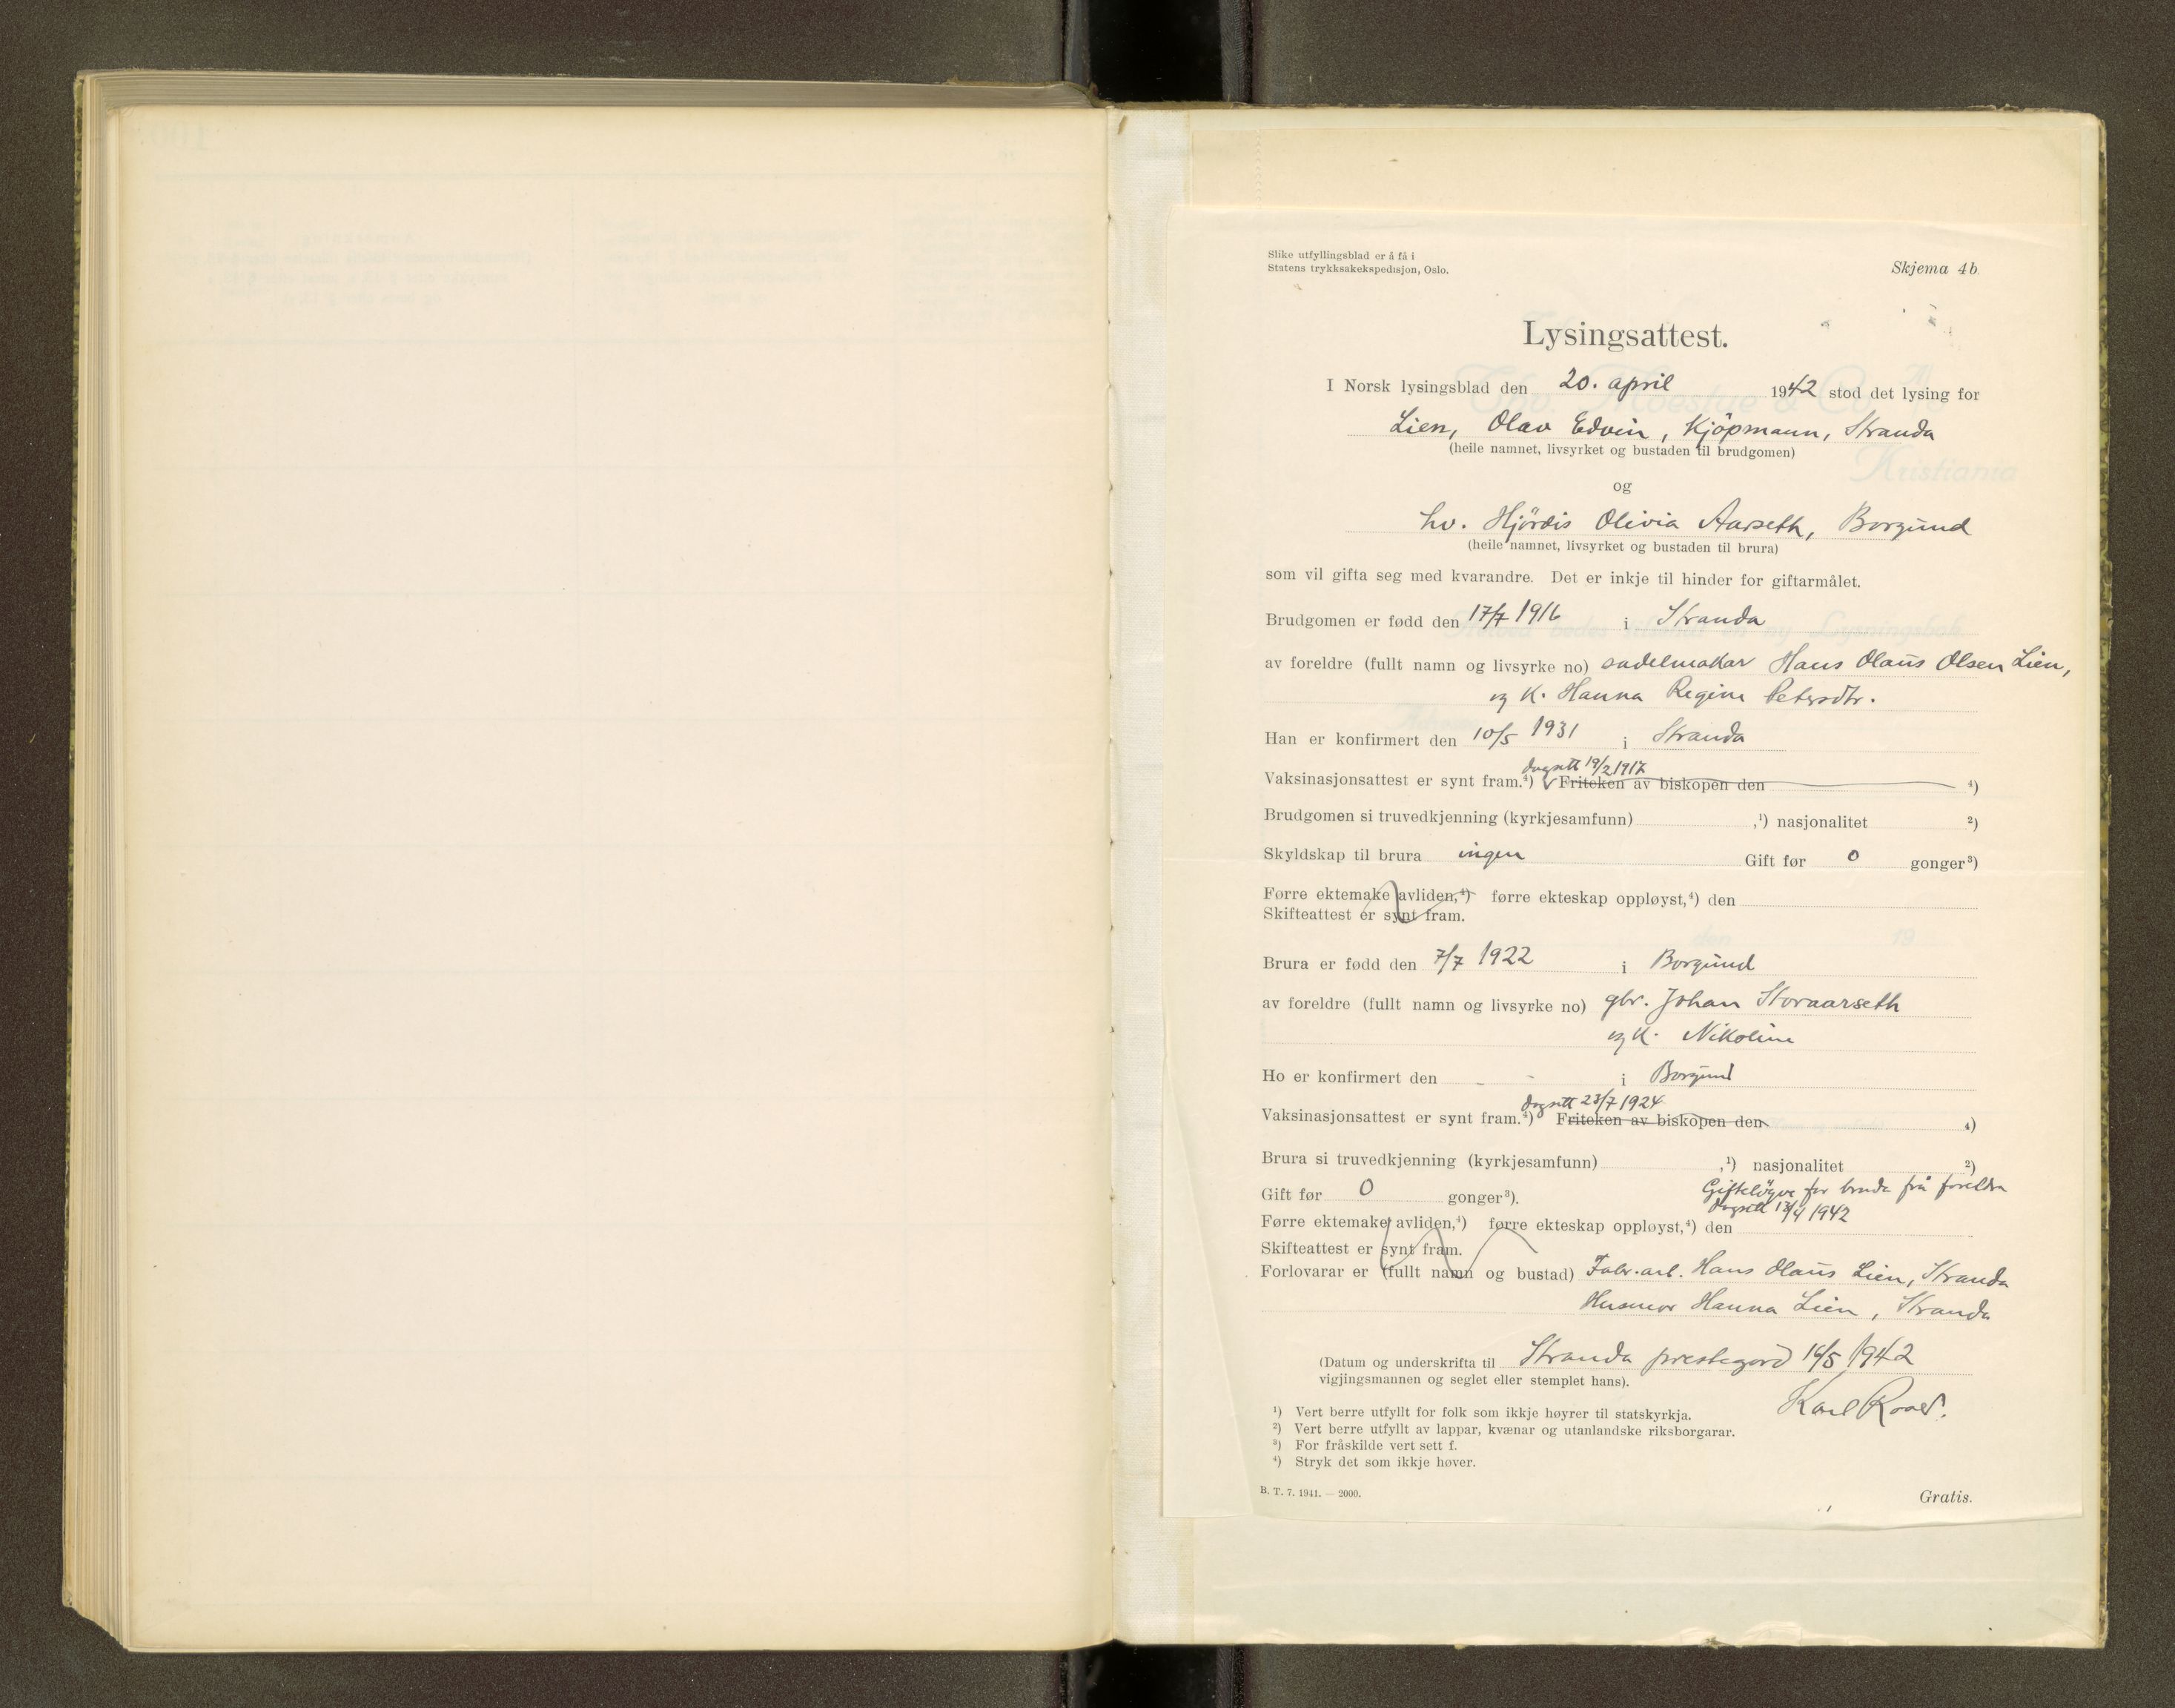 Slike utfyllingsblad er å få i
Statens trykksakekspedisjon, Oslo.
Skjema 4b
Lysingsattest.
I Norsk lysingsblad den 20. april 1942 stod det lysing for
Lien, Olav Edvin, Kjöpmann, Stranda
(heile namnet, livsyrket og bustaden til brudgomen)
og
hv. Hjördis Olivia Aarseth, Borgund
(heile namnet, livsyrket og bustaden til brura)
som vil gifta seg med kvarandre. Det er inkje til hinder for giftarmålet.
Brudgomen er fødd den 17/7 1916 i Stranda
av foreldre (fullt namn og livsyrke no) sadelmakar Hans Olaus Olsen Lien,
og K. Hanna Regine Petersdtr.
Han er konfirmert den 10/5 1931 i Stranda
dagsett 19/2 1917
Vaksinasjonsattest er synt fram.⁴) Friteken av biskopen den ⁴)
Brudgomen si truvedkjenning (kyrkjesamfunn) ,¹) nasjonalitet ²)
Skyldskap til brura ingen Gift før 0 gonger³)
Førre ektemake avliden,⁴) førre ekteskap oppløyst,⁴) den
Skifteattest er synt fram.
Brura er fødd den 7/7 1922 i Borgund
av foreldre (fullt namn og livsyrke no) gbr. Johan Storaarseth
og K. Nikoline
Ho er konfirmert den - - i Borgund
dagsett 23/7 1924
Vaksinasjonsattest er synt fram.⁴) Friteken av biskopen den ⁴)
Brura si truvedkjenning (kyrkjesamfunn) ,¹) nasjonalitet ²)
Gift før 0 gonger³). Gifteløyve for bruda frå foreldra
dagsett 13/4 1942
Førre ektemake avliden,⁴) førre ekteskap oppløyst,⁴) den
Skifteattest er synt fram.
Forlovarar er (fullt namn og bustad) Fabr.arb. Hans Olaus Lien, Stranda
Husmor Hanna Lien, Stranda
(Datum og underskrifta til Stranda prestegard 16/5 1942
vigjingsmannen og seglet eller stemplet hans).
Karl Roaas.
¹) Vert berre utfyllt for folk som ikkje høyrer til statskyrkja.
²) Vert berre utfyllt av lappar, kvænar og utanlandske riksborgarar.
³) For fråskilde vert sett f.
⁴) Stryk det som ikkje høver.
B. T. 7. 1941. — 2000.
Gratis.